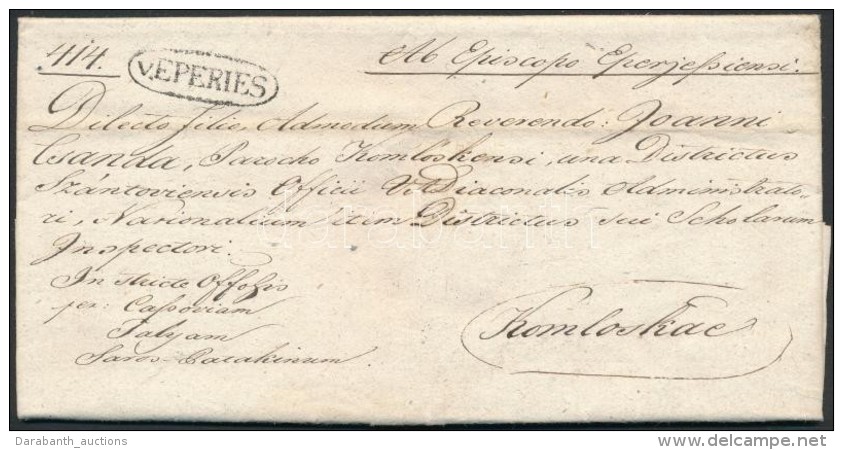 414.
v. EPERIES
Ab Episcopo Eperjessiensi.
Dilecto filio, Admodum Reverendo: Joanni
Csanda, Parocho Komloskensi, una Districtus
Szántoviensis Officii V. Diaconalis Administrato-
ri, Nationalium itim Districtus sui Scholarum
Inspectori.
In stricte Offosis
per: Cassoviam
Talyam
Saros-Patakinum.
Komloskae
darabanth
Darabanth_auctions
www.delcampe.net